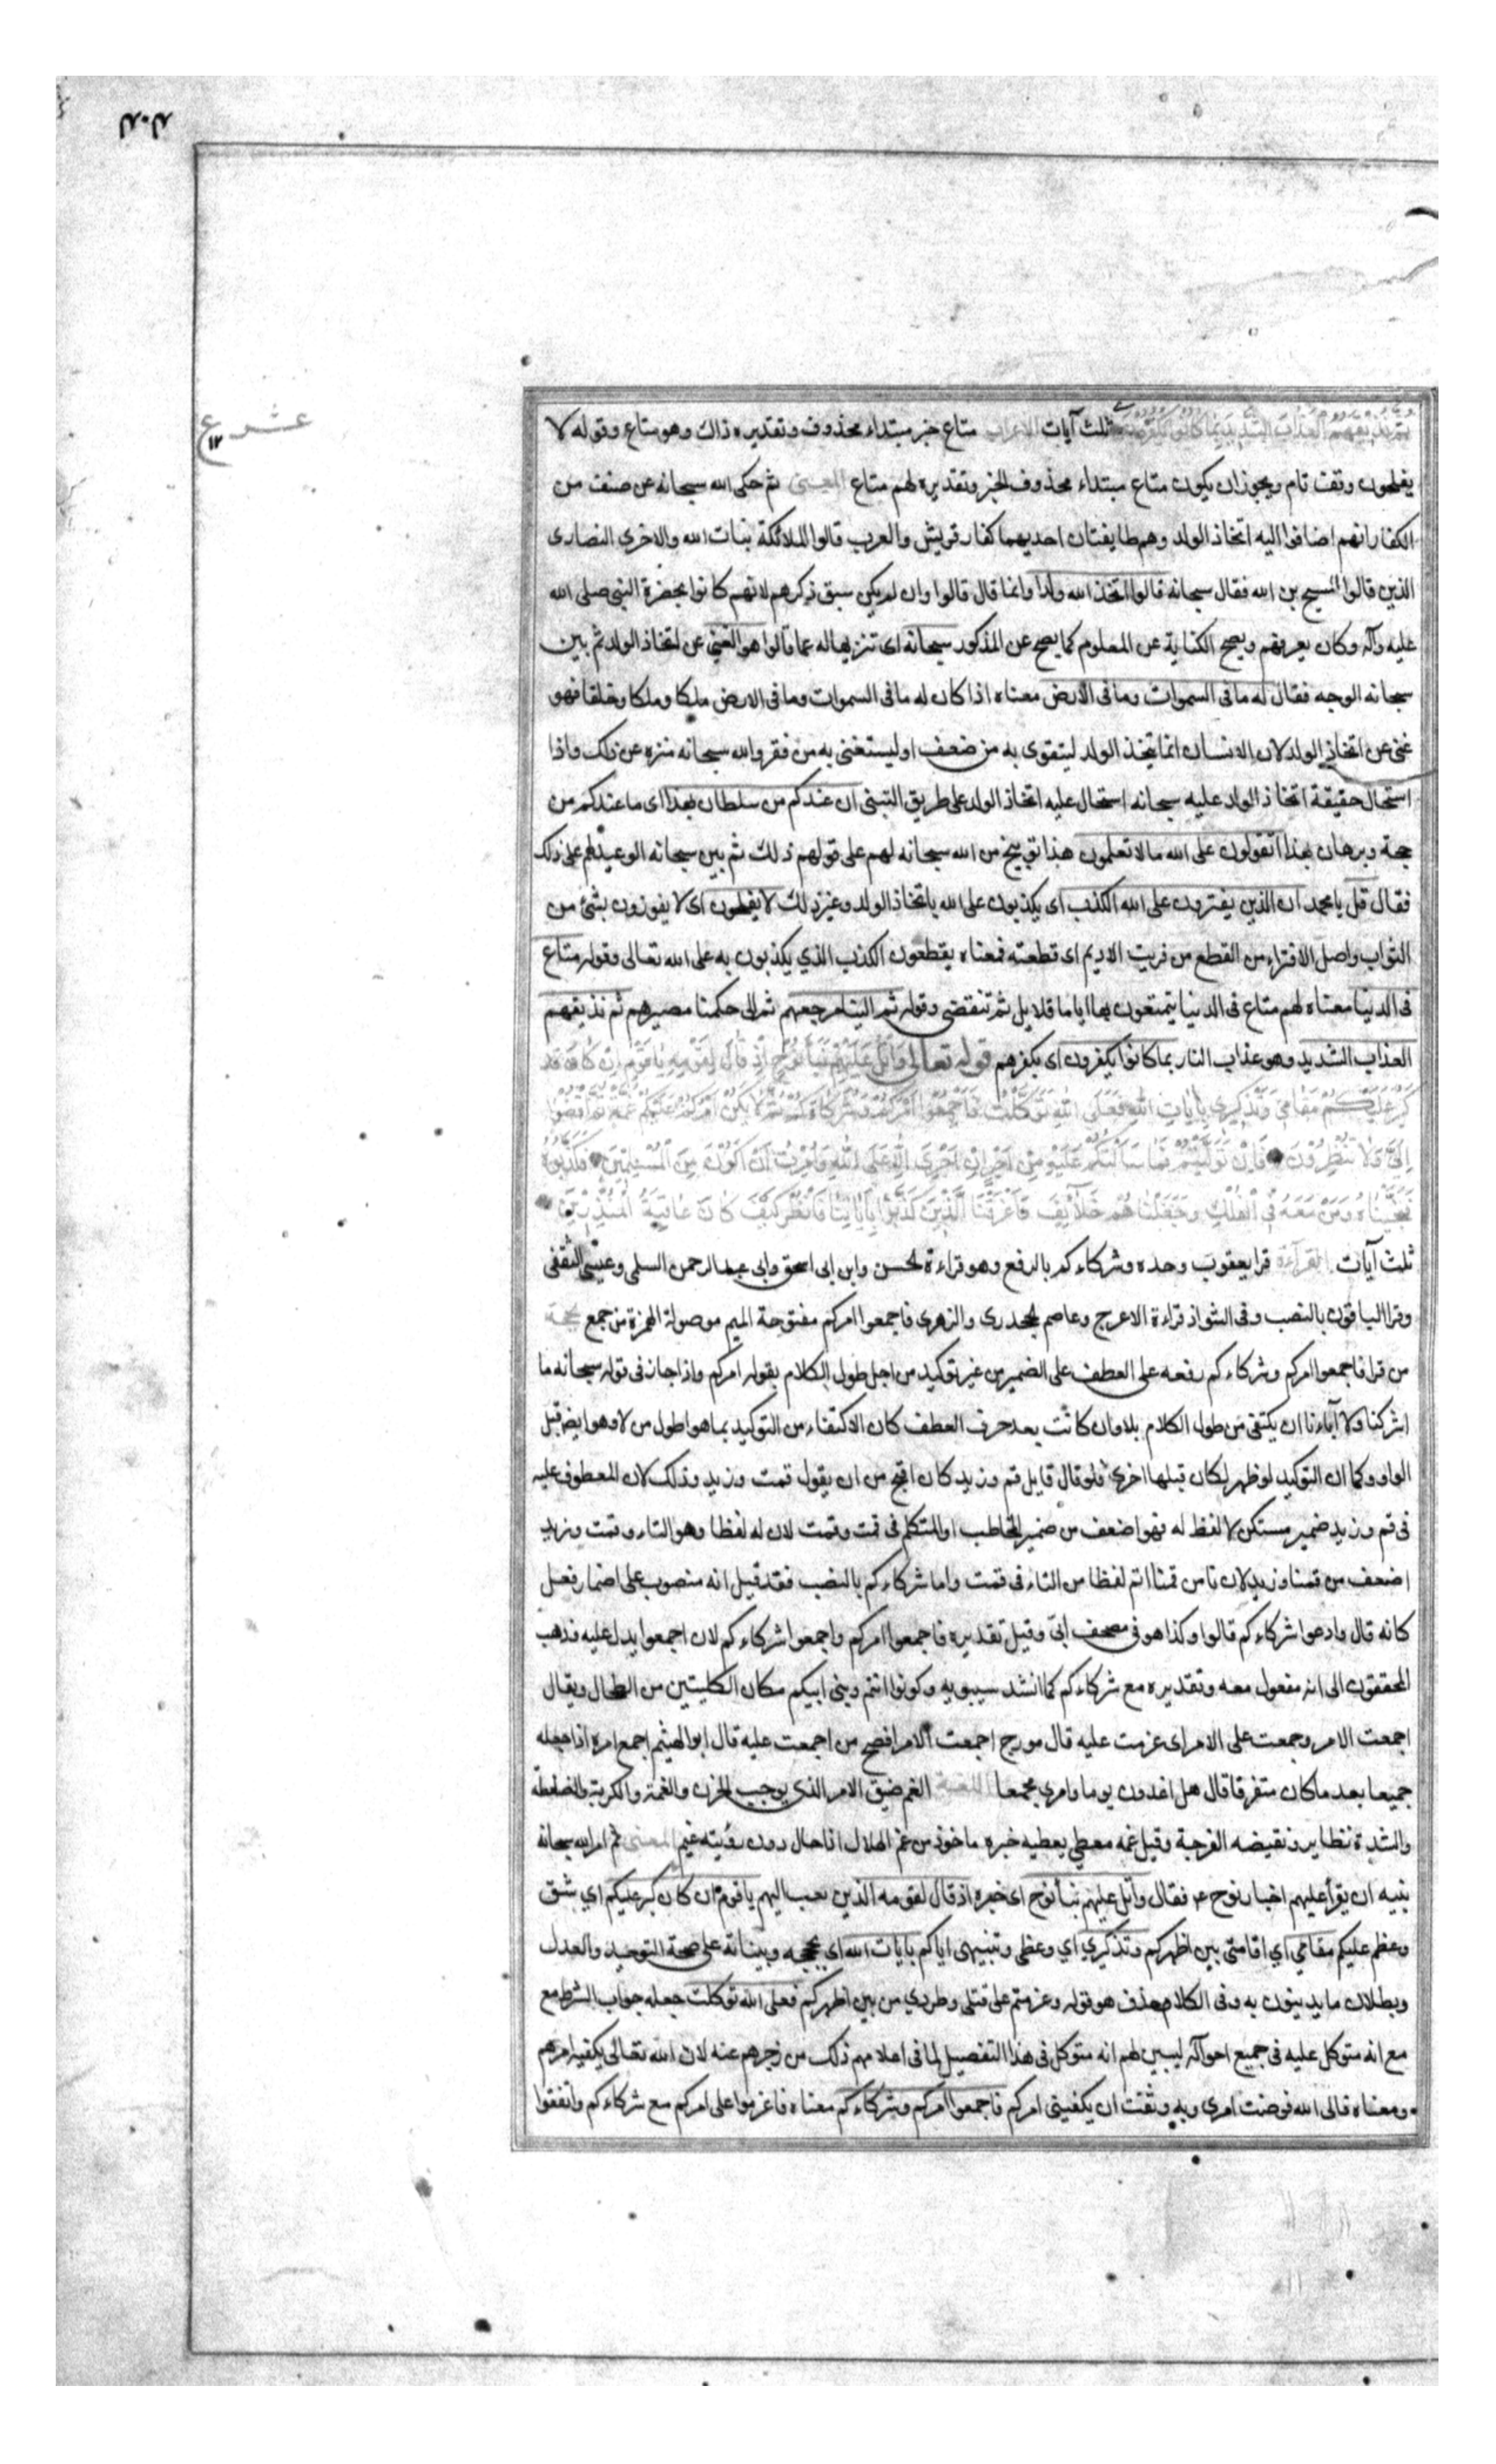 عشر ع
١٢
ثم نذيقهم العذاب الشديد بما كانوا يكفرون ثلث آيات الاعراب متاع خبر مبتداء محذوف وتقديره ذاك وهو متاع وقوله لا
يفلحون وقف تام ويجوز ان يكون متاع مبتداء محذوف الخبر وتقديره لهم متاع المعنى ثم حكى الله سبحانه عن صنف من
الكفار انهم اضافوا اليه اتخاذ الولد وهم طايفتان احديهما كفار قريش والعرب قالوا الملائكة بنات الله والاخرى النصارى
الذين قالوا المسيح بن الله فقال سبحانه قالوا اتخذ الله ولدا وانما قال قالوا وان لم يكن سبق ذكرهم لانهم كانوا بحضرة النبي صلى الله
عليه وآله وكان يعرفهم ويصح الكناية عن المعلوم كما يصح عن المذكور سبحانه اى تنزيها له عما قالوا هو الغني عن اتخاذ الولد ثم بين
سبحانه الوجه فقال له ما في السموات وما في الارض معناه اذا كان له ما في السموات وما في الارض ملكا وملكا وخلقا فهو
غني عن اتخاذ الولد لان الانسان انما يتخذ الولد ليتقوى به من ضعف او ليستغني به من فقر والله سبحانه منزه عن ذلك واذا
استحال حقيقة اتخاذ الولد عليه سبحانه استحال عليه اتخاذ الولد على طريق التبني ان عندكم من سلطان بهذا اى ما عندكم من
حجة وبرهان بهذا اتقولون على الله ما لا تعلمون هذا توبيخ من الله سبحانه لهم على قولهم ذلك ثم بين سبحانه الوعيد لهم على ذلك
فقال قل يا محمد ان الذين يفترون على الله الكذب اى يكذبون على الله باتخاذ الولد وغير ذلك لا يفلحون اى لا يفوزون بشئ من
الثواب واصل الافتراء من القطع من فريت الاديم اى قطعته فمعناه يقطعون الكذب الذي يكذبون به على الله تعالى وقوله متاع
في الدنيا معناه لهم متاع في الدنيا يتمتعون بها اياما قلايل ثم تنقضي وقوله ثم الينا مرجعهم ثم الى حكمنا مصيرهم ثم نذيقهم
العذاب الشديد وهو عذاب النار بما كانوا يكفرون اى بكفرهم قوله تعالى وَاتْلُ عَلَيْهِمْ نَبَأَ نُوحٍ اِذْ قَالَ لِقَوْمِهِ يَا قَوْمِ اِنْ كَانَ
كَبُرَ عَلَيْكُمْ مَقَامِي وَتَذْكِيرِي بِآيَاتِ اللهِ فَعَلَى اللهِ تَوَكَّلْتُ فَاَجْمِعُوا اَمْرَكُمْ وَشُرَكَاءَكُمْ ثُمَّ لَا يَكُنْ اَمْرُكُمْ عَلَيْكُمْ غُمَّةً ثُمَّ اقْضُوا
اِلَيَّ وَلَا تُنْظِرُونِ فَاِنْ تَوَلَّيْتُمْ فَمَا سَاَلْتُكُمْ عَلَيْهِ مِنْ اَجْرٍ اِنْ اَجْرِيَ اِلَّا عَلَى اللهِ وَاُمِرْتُ اَنْ اَكُونَ مِنَ الْمُسْلِمِينَ فَكَذَّبُوهُ
فَنَجَّيْنَاهُ وَمَنْ مَعَهُ فِي الْفُلْكِ وَجَعَلْنَاهُمْ خَلَائِفَ وَاَغْرَقْنَا الَّذِينَ كَذَّبُوا بِآيَاتِنَا فَانْظُرْ كَيْفَ كَانَ عَاقِبَةُ الْمُنْذَرِينَ
ثلث آيات القراءة قرا يعقوب وحده وشركاءكم بالرفع وهو قراءة الحسن وابن ابى اسحق وابى عبد الرحمن السلمي وعيسى الثقفي
وقرا الباقون بالنصب وفى الشواذ قراءة الاعرج وعاصم الجحدرى والزهرى فاجمعوا امركم مفتوحة الميم موصولة الهمزة من جمع حجة
من قرا فاجمعوا امركم وشركاءكم رفعه على العطف على الضمير من غير توكيد من اجل طول الكلام بقوله امركم واذا جاز فى قوله سبحانه ما
اشركنا ولا آباءنا ان يكتفى من طول الكلام بلا وان كانت بعد حرف العطف كان الاكتفاء من التوكيد بما هو اطول من لا وهو ايضا قبل
الواو وكما ان التوكيد لو ظهر لكان قبلها اخرى فلو قال قايل قم وزيد كان اقبح من ان يقول قمت وزيد وذلك لان المعطوف عليه
فى قم وزيد ضمير مستكن لا لفظ له فهو اضعف من ضمير المخاطب او المتكلم فى قمت وقمت لان له لفظا وهو التاء وقمت وزيد
اضعف من قمنا وزيد لان نا من قمنا اتم لفظا من التاء فى قمت واما شركاءكم بالنصب فقد قيل انه منصوب على اضمار فعل
كانه قال وادعوا شركاءكم قالوا وكذا هو فى مصحف ابىّ وقيل تقديره فاجمعوا امركم واجمعوا شركاءكم لان اجمعوا يدل عليه وذهب
المحققون الى انه مفعول معه وتقديره مع شركاءكم كما انشد سيبويه وكونوا انتم وبني ابيكم مكان الكليتين من الطحال ويقال
اجمعت الامر وجمعت على الامر اى عزمت عليه قال مورج اجمعت الامر افصح من اجمعت عليه قال ابو الهيثم اجمع امره اذا جعله
جميعا بعد ما كان متفرقا قال هل اغدون يوما وامري مجمعا اللغة الغم ضيق الامر الذي يوجب الحزن والغمة والكربة والضغطة
والشدة نظاير ونقيضه الفرجة وقيل غمه مغطي يغطيه خبره ماخوذ من غم الهلال اذا حال دون رؤيته غيم المعنى ثم امر الله سبحانه
نبيه ان يقرأ عليهم اخبار نوح ع فقال واتل عليهم نبأ نوح اى خبره اذ قال لقومه الذين بعث اليهم يا قوم ان كان كبر عليكم اي شق
وعظم عليكم مقامي اي اقامتي بين اظهركم وتذكيري اي وعظي وتنبيهى اياكم بايات الله اي بحججه وبيناته على صحة التوحيد والعدل
وبطلان ما يدينون به وفى الكلام حذف هو قوله وعزمتم على قتلى وطردي من بين اظهركم فعلى الله توكلت جعله جواب الشرط مع
مع انه متوكل عليه فى جميع احواله ليبين لهم انه متوكل فى هذا التفصيل لما فى اعلامهم ذلك من زجرهم عنه لان الله تعالى يكفيه امرهم
ومعناه فالى الله فوضت امرى وبه وثقت ان يكفيني امركم فاجمعوا امركم وشركاءكم معناه فاعزموا على امركم مع شركاءكم واتفقوا